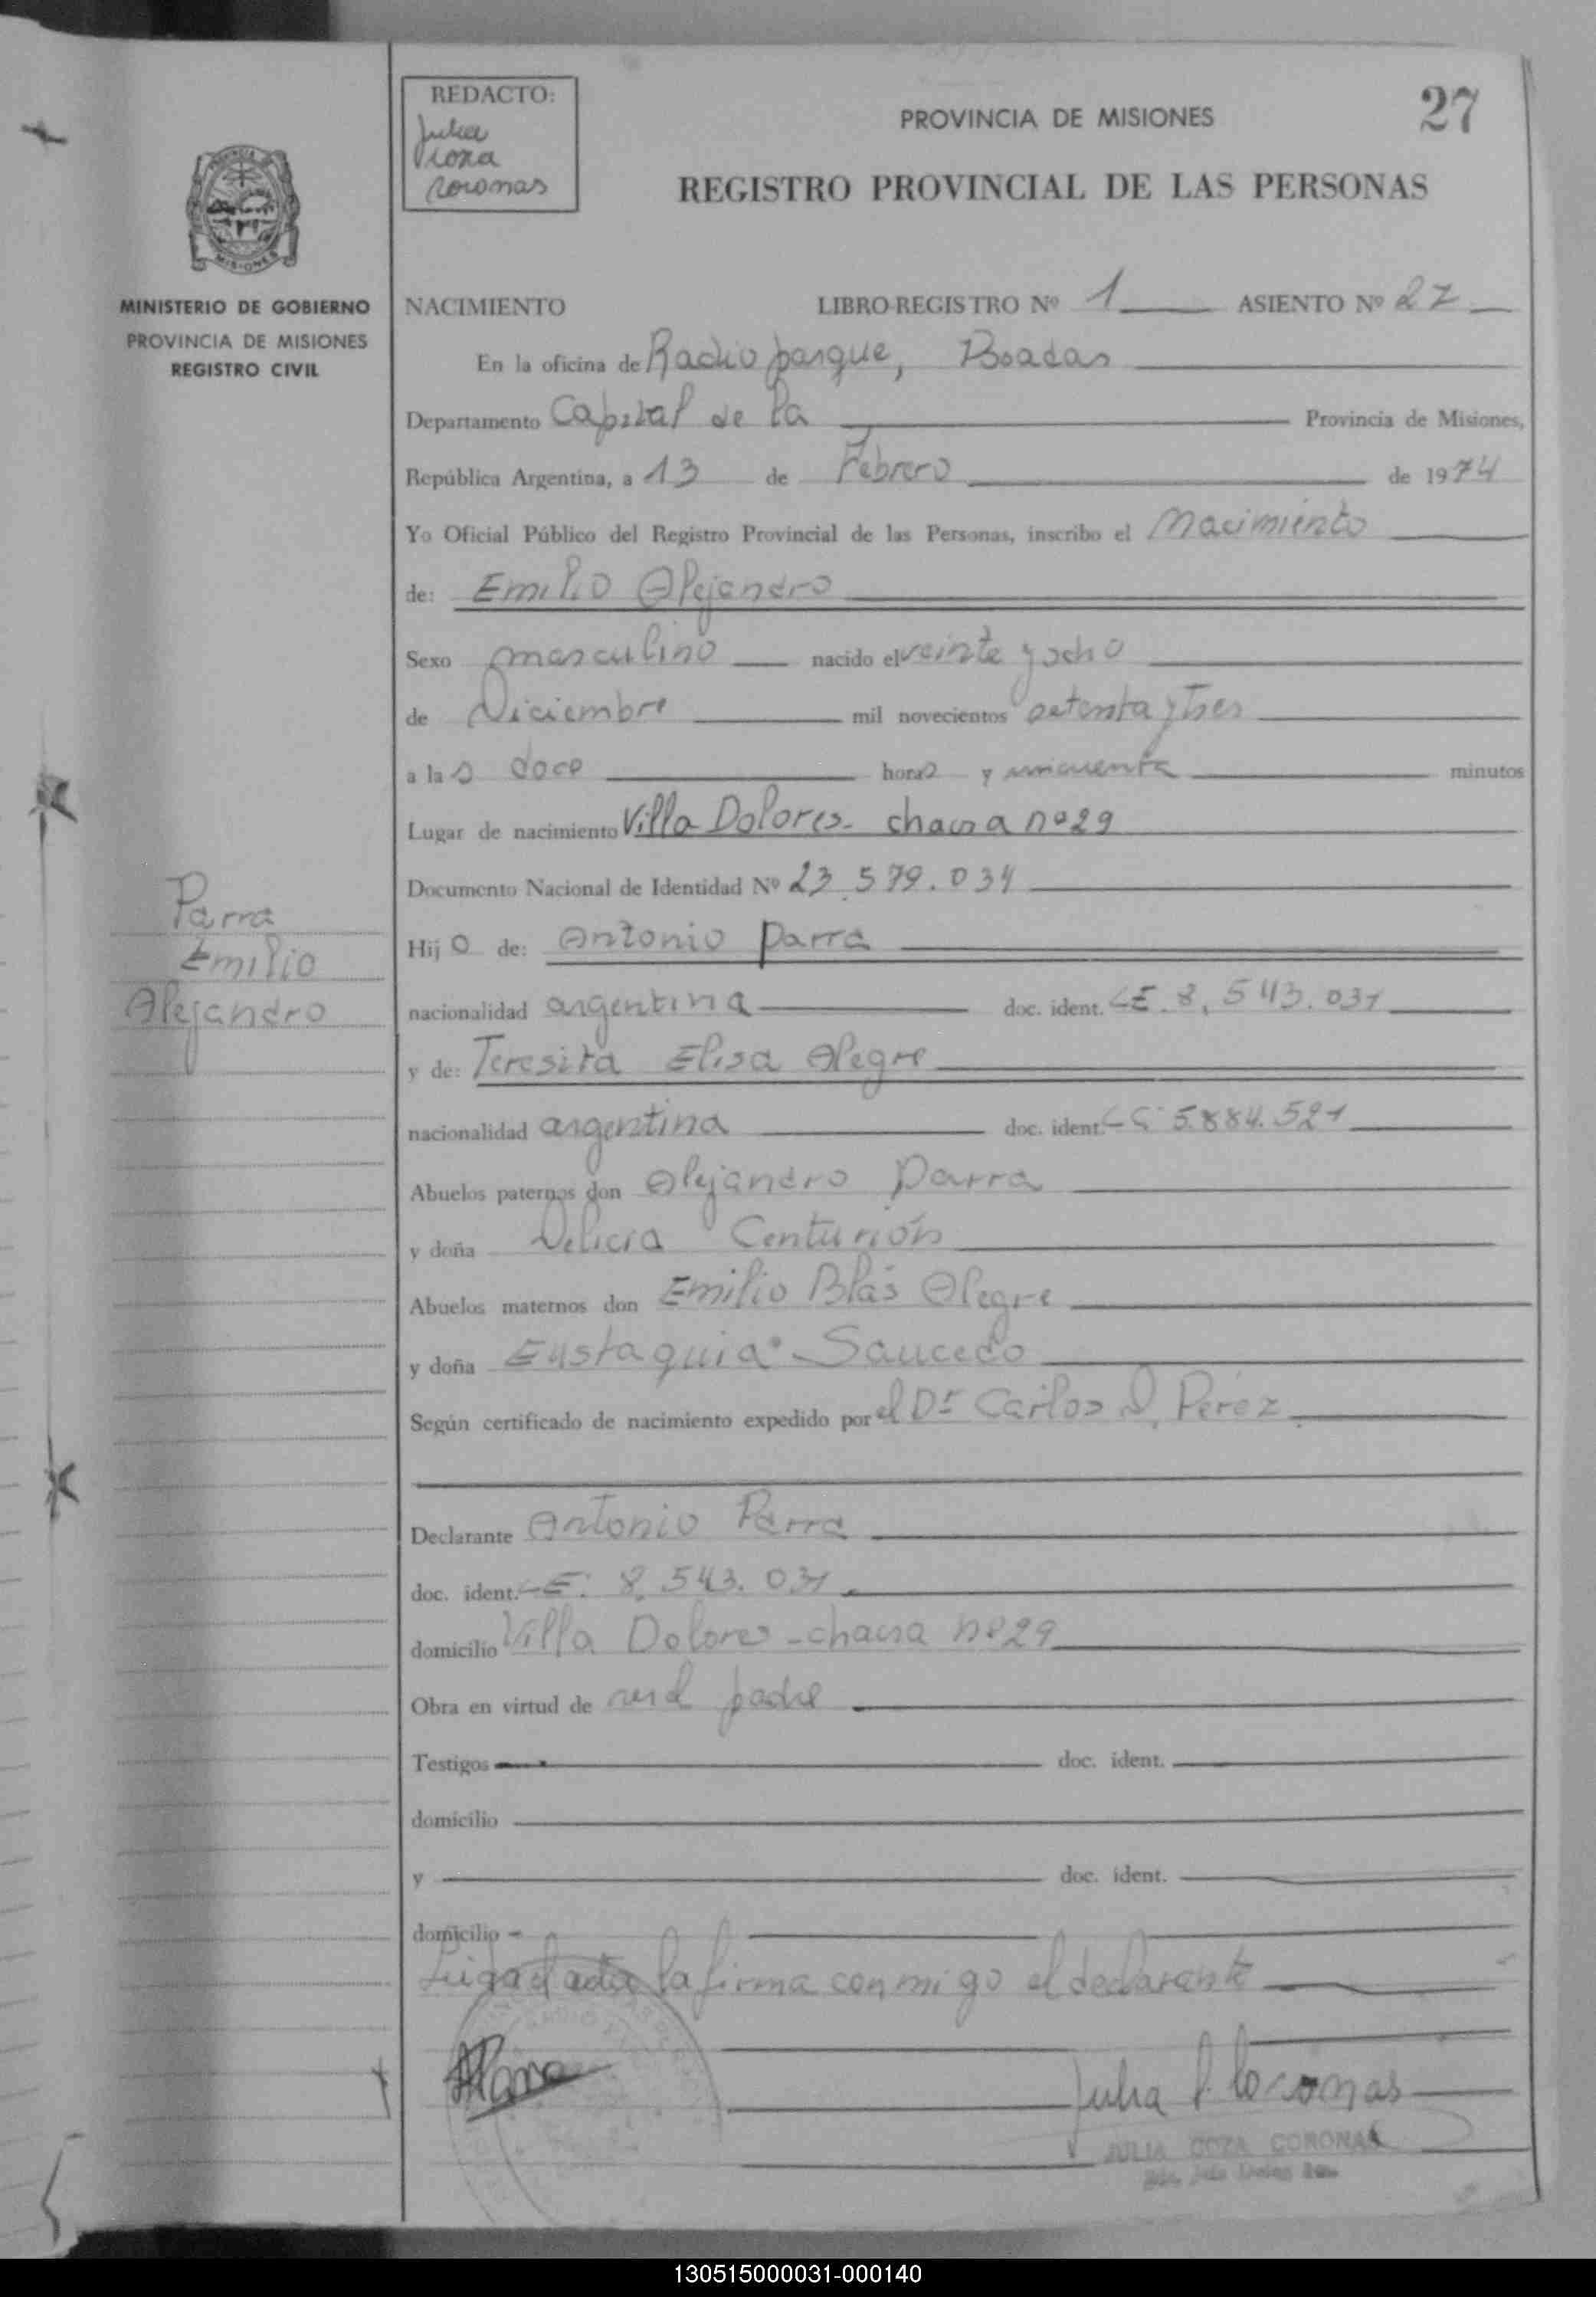 REDACTO:
Julia
Coronas
PROVINCIA DE MISIONES
27
REGISTRO PROVINCIAL DE LAS PERSONAS
MISIONES
MINISTERIO DE GOBIERNO
PROVINCIA DE MISIONES
REGISTRO CIVIL
NACIMIENTO LIBRO-REGISTRO Nº 1 ASIENTO Nº 27
En la oficina de Radio parque, Posadas
Departamento Capital de la Provincia de Misiones,
República Argentina, a 13 de Febrero de 1974
Yo Oficial Público del Registro Provincial de las Personas, inscribo el Nacimiento
de: Emilio Alejandro
Sexo masculino nacido el veinte y ocho
de Diciembre mil novecientos setenta y tres
a las doce horas y cincuenta minutos
Lugar de nacimiento Villa Dolores - chacra nº 29
Documento Nacional de Identidad Nº 23.579.034
Parra
Emilio
Alejandro
Hijo de: Antonio Parra
nacionalidad argentina doc. ident. LE. 8.543.031
y de: Teresita Elisa Alegre
nacionalidad argentina doc. ident. LC 5.884.521
Abuelos paternos don Alejandro Parra
y doña Delicia Centurión
Abuelos maternos don Emilio Blás Alegre
y doña Eustaquia Saucedo
Según certificado de nacimiento expedido por el Dr Carlos D. Pérez
Declarante Antonio Parra
doc. ident. LE. 8.543.031
domicilio Villa Dolores - chacra nº 29
Obra en virtud de ser el padre
Testigos doc. ident.
domicilio
y doc. ident.
domicilio
Leida el acta la firma conmigo el declarante
AParra
Julia C. Coronas
JULIA COZA CORONAS
130515000031-000140